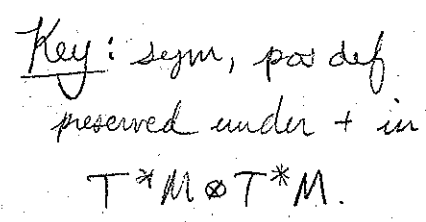 Key: sym, pos def
preserved under + in
T*M⊗T*M.